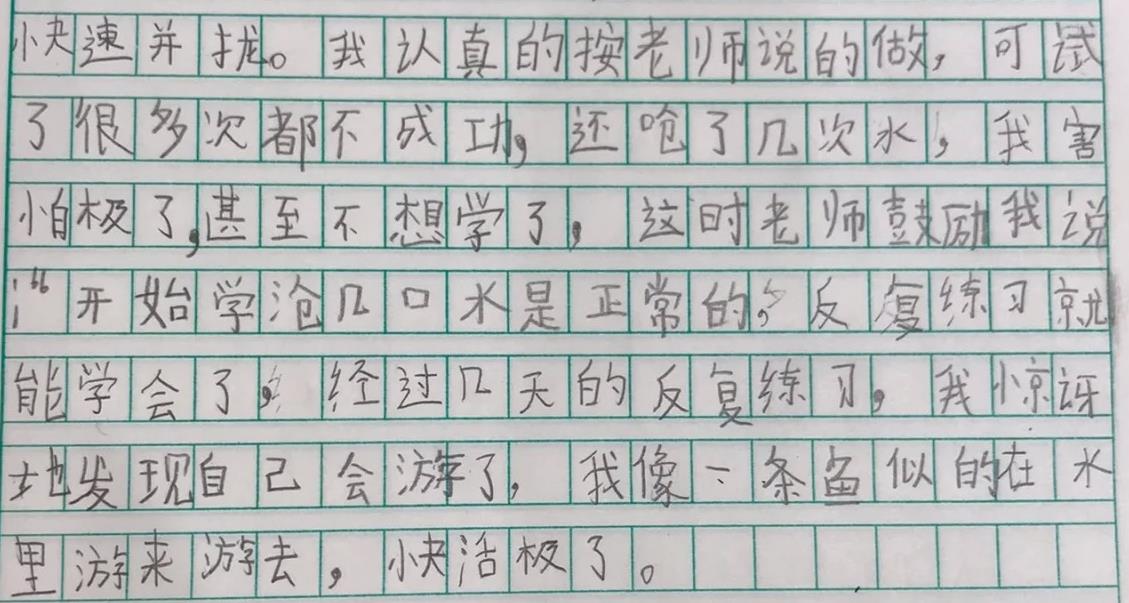 快速并拢。我认真的按老师说的做，可试
了很多次都不成功，还呛了几次水，我害
怕极了，甚至不想学了，这时老师鼓励我说
：“开始学沧几口水是正常的，反复练习就
能学会了，经过几天的反复练习，我惊讶
地发现自己会游了，我像一条鱼似的在水
里游来游去，快活极了。